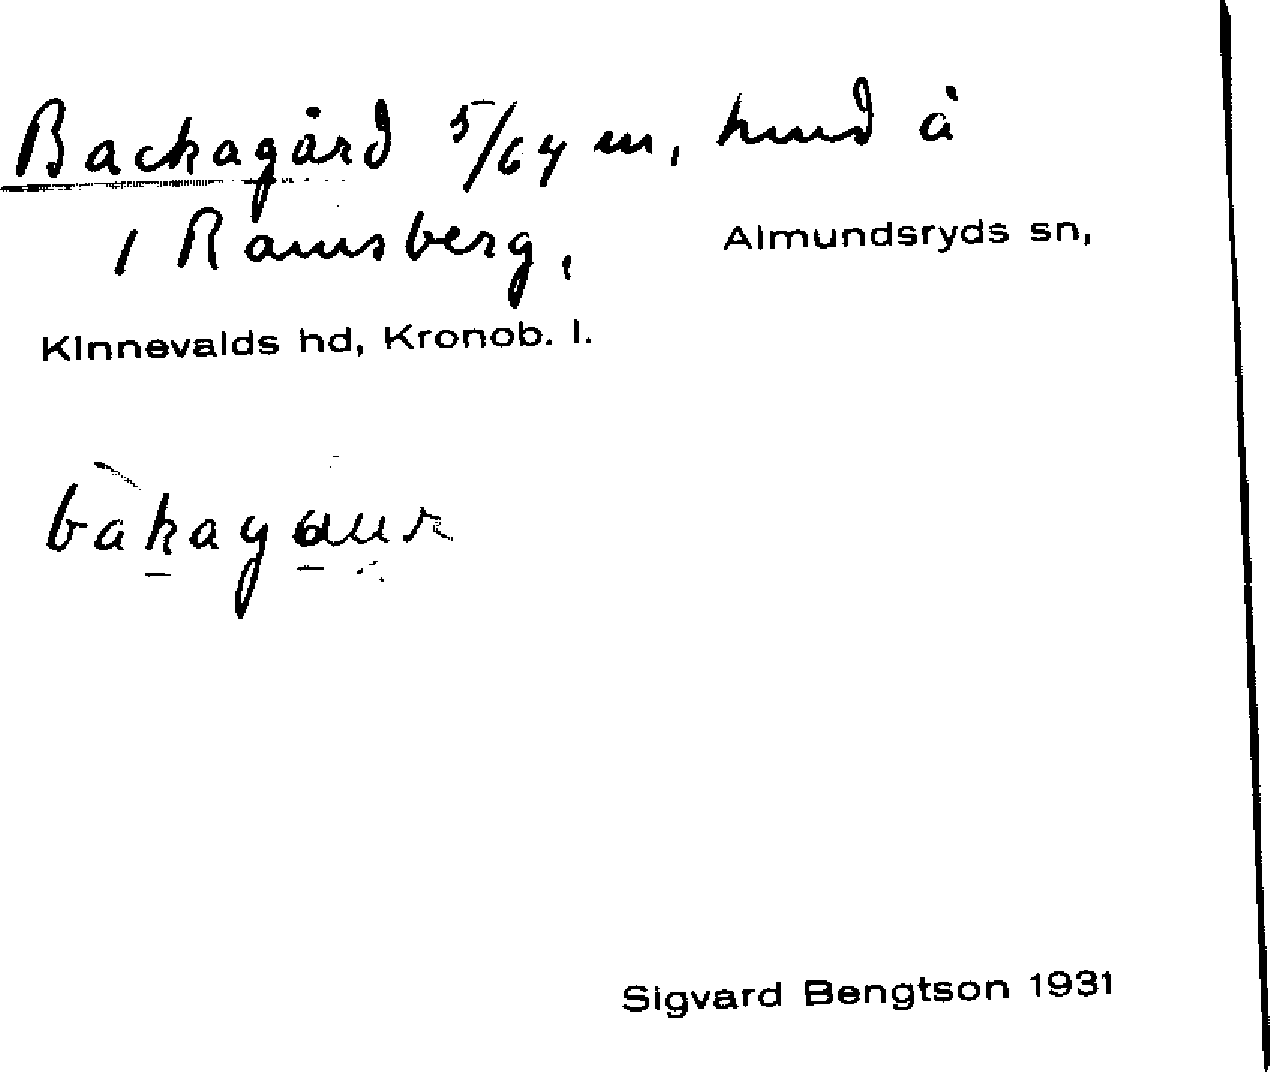 Backagård 5/64 m, hmd å
1 Ramsberg, Almundsryds sn,
Kinnevalds hd, Kronob. l.
bakagaur
Sigvard Bengtson 1931